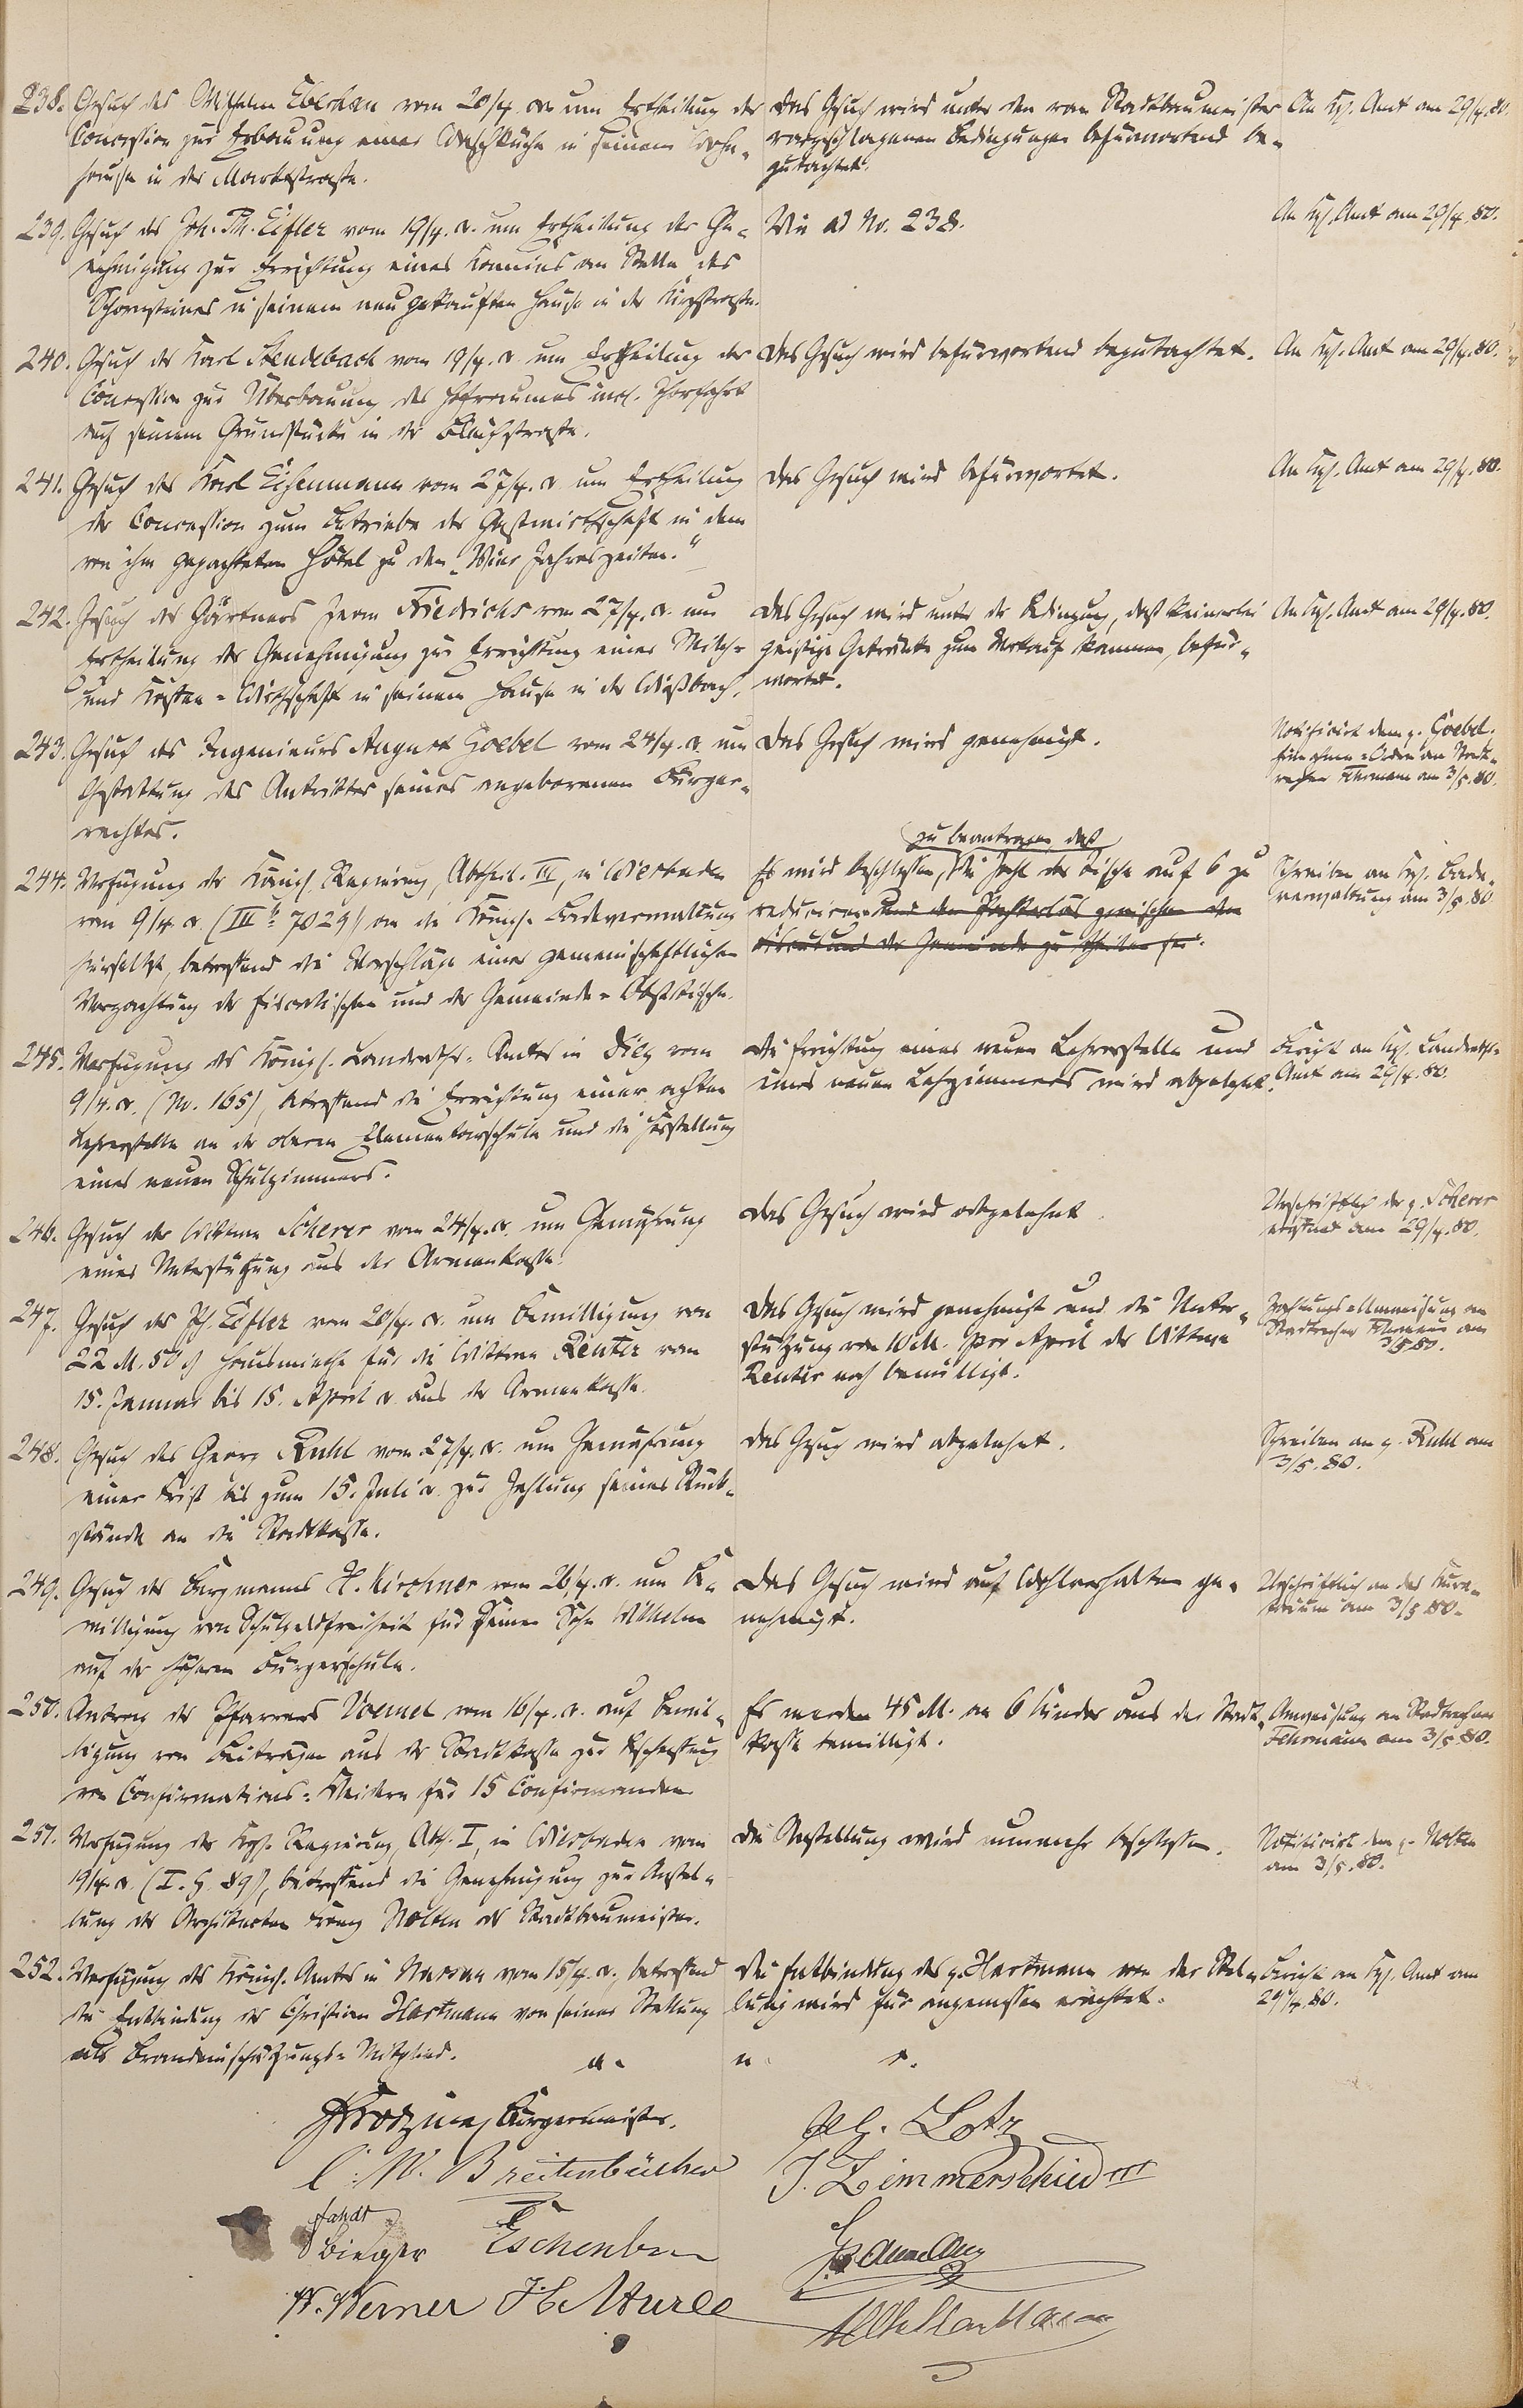 238. Gesuch des Wilhelm Eberhan vom 20/4. a. um Ertheilung der
Concession zur Erbauung einer Waschküche in seinem Wohn-
hause in der Marktstraße.
Das Gesuch wird unter den vom Stadtbaumeister
vorgeschlagenen Bedingungen befürwortend be-
gutachtet.
An Kgl. Amt am 29/4. 80.
239. Gesuch des Joh. Ph. Eifler vom 19/4. a. um Ertheilung der Ge-
nehmigung zur Errichtung eines Kamins an Stelle des
Schornsteines in seinem neu gekauften Hause in der Kirchstraße.
Wie ad No. 238.
An Kgl. Amt am 29/4. 80.
240. Gesuch des Karl Stendebach vom 19/4. a. um Ertheilung der
Concession zur Überbauung des Hofraumes incl. Thorfahrt
auf seinem Grundstücke in der Bleichstraße.
Das Gesuch wird befürwortend begutachtet.
An Kgl. Amt am 29/4. 80.
241. Gesuch des Karl Eisenmann vom 27/4. a. um Ertheilung
der Concession zum Betriebe der Gastwirthschaft in dem
von ihm gepachteten Hôtel zu den „Vier Jahreszeiten."
Das Gesuch wird befürwortet.
An Kgl. Amt am 29/4. 80.
242. Gesuch des Gärtners Herm Friedrichs vom 27/4. a. um
Ertheilung der Genehmigung zur Errichtung einer Milch-
und Kaffee-Wirthschaft in seinem Hause in der Wiesbach.
Das Gesuch wird unter der Bedingung, daß keinerlei
geistige Getränke zum Verkauf kommen, befür-
wortet.
An Kgl. Amt am 29/4. 80.
243. Gesuch des Ingenieurs August Goebel vom 24/4. a. um
Gestattung des Antrittes seines angeborenen Bürger-
rechtes.
Das Gesuch wird genehmigt.
Notificirt dem p. Goebel.
Einnahme-Order an Stadt-
rechner Fehrmann am 3/5. 80.
244. Verfügung der Königl. Regierung, Abtheil. III, in Wiesbaden
vom 9/4. a. (III b 7029) an die Königl. Badeverwaltung
hierselbst, betreffend die Vorschläge einer gemeinschaftlichen
Verpachtung der fiscalischen und der Gemeinde-Obsttische.
zu beantragen, daß
Es wird beschlossen, die Zahl der Tische auf 6 zu
reduciren und den Pachterlös zwischen dem
Fiscus und der Gemeinde zu theilen sei.
Schreiben an Kgl. Bade-
verwaltung am 3/5. 80.
245. Verfügung des Königl. Landraths-Amtes in Diez vom
9/4. a. (No. 165), betreffend die Errichtung einer achten
Lehrerstelle an der oberen Elementarschule und die Herstellung
eines neuen Schulzimmers.
Die Errichtung einer neuen Lehrerstelle und
eines neuen Lehrzimmers wird abgelehnt.
Bericht an Kgl. Landraths-
Amt am 29/4. 80.
246. Gesuch der Wittwe Scherer vom 24/4. a. um Gewährung
einer Unterstützung aus der Armenkasse.
Das Gesuch wird abgelehnt.
Urschriftlich der p. Scherer
am 29/4. 80.
247. Gesuch des Ph. Eifler vom 20/4. a. um Bewilligung von
22 M. 50 ₰ Hausmiethe für die Wittwe Reuter vom
15. Januar bis 15. April a. aus der Armenkasse.
Das Gesuch wird genehmigt und die Unter-
stützung von 10 M. per April der Wittwe
Reuter noch bewilligt.
Zahlungsanweisung an
Stadtrechner Fehrmann am
3/5 80.
248. Gesuch des Georg Ruhl vom 27/4. a. um Gewährung
einer Frist bis zum 15. Juli a. zur Zahlung seiner Rück-
stände an die Stadtkasse.
Das Gesuch wird abgelehnt.
Schreiben an p. Ruhl am
3/5. 80.
249. Gesuch des Bergmanns H. Kirchner vom 26/4. a. um Be-
willigung von Schulgeldfreiheit für seinen Sohn Wilhelm
auf der höheren Bürgerschule.
Das Gesuch wird auf Wohlverhalten ge-
nehmigt.
Urschriftlich an das Kura-
torium am 3/5 80.
250. Antrag des Pfarrers Voemel vom 16/4. a. auf Bewil-
ligung von Beiträgen aus der Stadtkasse zur Beschaffung
von Confirmations-Kleidern für 15 Confirmanden
Es werden 45 M. an 6 Kinder aus der Stadt-
kasse bewilligt.
Anweisung an Stadtrechner
Fehrmann am 3/5. 80.
251. Verfügung der Kgl. Regierung, Abth. I, in Wiesbaden vom
19/4. a. (I. G. 89), betreffend die Genehmigung zur Anstel-
lung des Architecten Franz Nolten als Stadtbaumeister.
Die Anstellung wird nunmehr beschlossen.
Notificirt dem p. Nolten
am 3/5. 80.
252. Verfügung des Königl. Amtes in Nassau vom 15/4. a., betreffend
die Entbindung des Christian Hartmann von seiner Stellung
als Brandeinschätzungs-Mitglied.
Die Entbindung des p. Hartmann von der Stel-
lung wird für angemessen erachtet.
Bericht an Kgl. Amt am
29/4. 80.
a. u. s.
Bürgermeister.
C. W. Breitenbücher
Lotz
J. Zimmerschied III
W. Werner